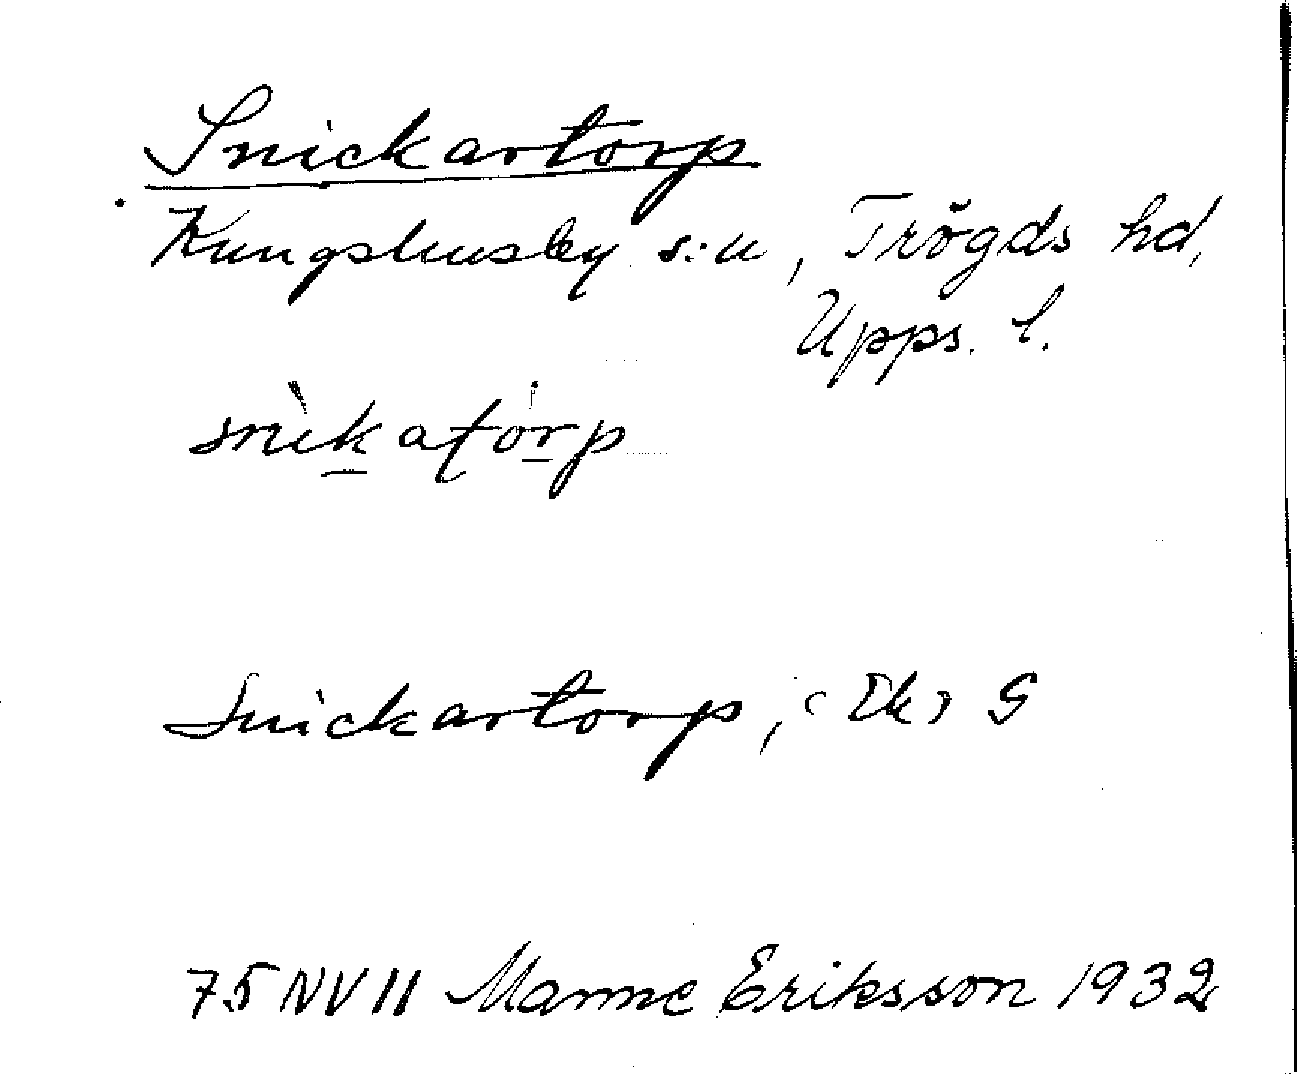 Snickartorp
Kungshusby s:n, Trögds hd,
Upps. l.
snìkatórp
Snickartorp, (Ek) G
75 NV 11 Manne Eriksson 1932